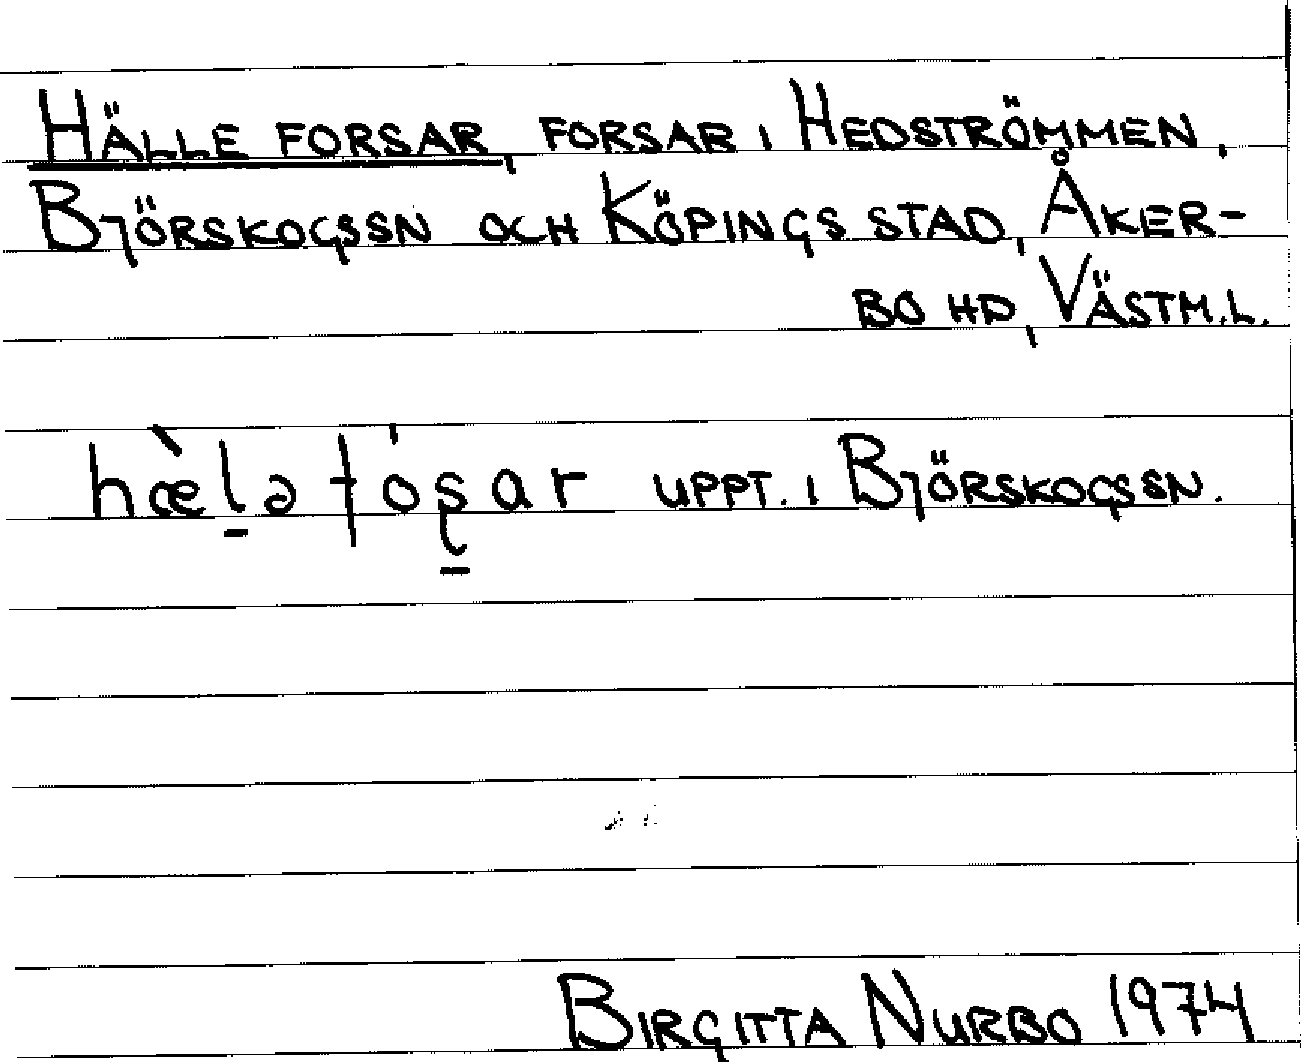 HÄLLE FORSAR, FORSAR I HEDSTRÖMMEN,
BJÖRSKOGSSN OCH KÖPINGS STAD, ÅKER-
BO HD, VÄSTM.L.
hæ̀l̠ə fó̍ʂ̠ar UPPT. I BJÖRSKOGSSN.
BIRGITTA NURBO 1974